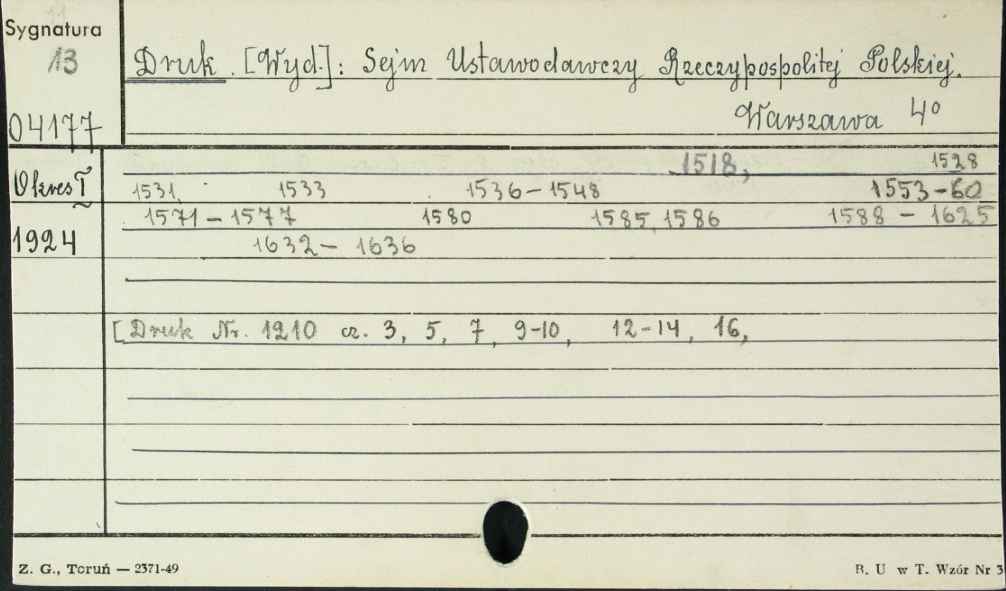 Sygnatura
13
04177
Druk. [Wyd.]: Sejm Ustawodawczy Rzeczypospolitej Polskiej.
Warszawa 4°
Okres I
1924
1518, 1528
1531, 1533 1536-1548 1553-60
1571-1577 1580 1585, 1586 1588-1625
1632-1636
[Druk Nr. 1210 cz. 3, 5, 7, 9-10, 12-14, 16,
Z. G., Toruń — 2371-49
B. U w T. Wzór Nr 3